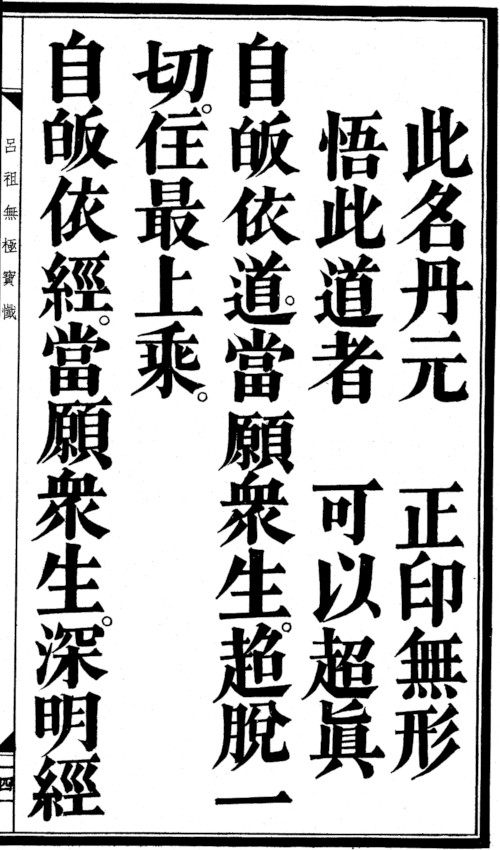 此名丹元　正印無形
悟此道者　可以超眞
自皈依道。當願衆生。超脫一
切。住最上乘。
自皈依經。當願衆生。深明經
呂祖無極寶懺
四